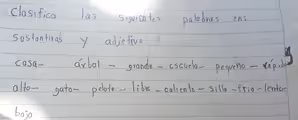 Clasifica las siguientes palabras en:
Sustantivos y adjetivo
casa- árbol - grande - escuela - pequeño - rápido
alto - gato - pelota - libro - caliente - silla - frio - lento-
bajo